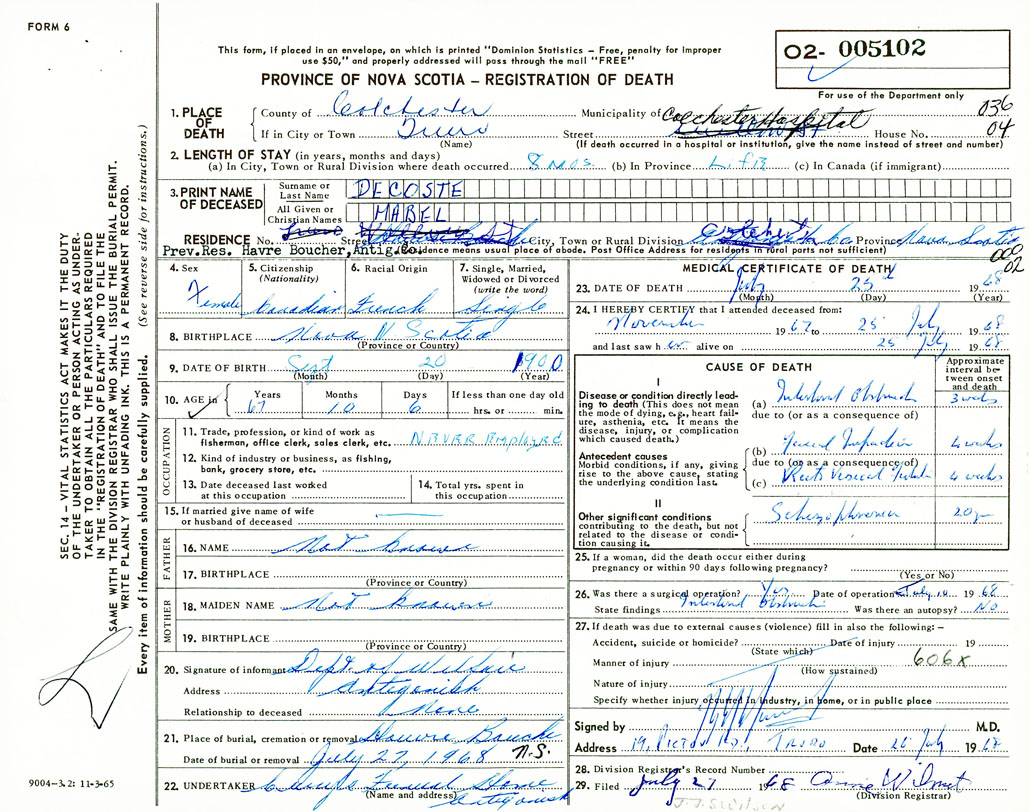 FORM 6
This form, if placed in an envelope, on which is printed "Dominion Statistics – Free, penalty for improper
use $50," and properly addressed will pass through the mail "FREE"
PROVINCE OF NOVA SCOTIA – REGISTRATION OF DEATH
O2- 005102
For use of the Department only
036
04
1. PLACE OF DEATH
County of Colchester Municipality of Colchester Hospital
If in City or Town Truro Street House No.
(Name) (If death occurred in a hospital or institution, give the name instead of street and number)
2. LENGTH OF STAY (in years, months and days)
(a) In City, Town or Rural Division where death occurred 8 mos. (b) In Province Life (c) In Canada (if immigrant)
3. PRINT NAME OF DECEASED
Surname or Last Name DECOSTE
All Given or Christian Names MABEL
RESIDENCE No. Street City, Town or Rural Division Colchester Province Nova Scotia
Prev.Res. Havre Boucher, Antig.Co. Residence means usual place of abode. Post Office Address for residents in rural parts not sufficient)
002
02
4. Sex Female
5. Citizenship (Nationality) Canadian
6. Racial Origin French
7. Single, Married, Widowed or Divorced (write the word) Single
8. BIRTHPLACE Nova Scotia
(Province or Country)
9. DATE OF BIRTH Sept 20 1900
(Month) (Day) (Year)
10. AGE in Years 67 Months 10 Days 6 If less than one day old hrs. or min.
OCCUPATION
11. Trade, profession, or kind of work as
fisherman, office clerk, sales clerk, etc. NEVER Employed
12. Kind of industry or business, as fishing,
bank, grocery store, etc.
13. Date deceased last worked
at this occupation
14. Total yrs. spent in
this occupation
15. If married give name of wife
or husband of deceased
FATHER
16. NAME Not Known
17. BIRTHPLACE
(Province or Country)
MOTHER
18. MAIDEN NAME Not Known
19. BIRTHPLACE
(Province or Country)
20. Signature of informant Dept. of Welfare
Address Antigonish
Relationship to deceased None
21. Place of burial, cremation or removal Havre Bouche
N.S.
Date of burial or removal July 27, 1968
22. UNDERTAKER Funeral Home
(Name and address) Antigonish
MEDICAL CERTIFICATE OF DEATH
23. DATE OF DEATH July 25 1968
(Month) (Day) (Year)
24. I HEREBY CERTIFY that I attended deceased from:
November 1967 to 25 July 1968
and last saw her alive on 25 July 1968
CAUSE OF DEATH
Approximate interval between onset and death
I
Disease or condition directly leading to death (This does not mean the mode of dying, e.g., heart failure, asthenia, etc. It means the disease, injury, or complication which caused death.)
(a) Intestinal Obstruction 3 weeks
due to (or as a consequence of)
(b) Faecal Impaction 4 weeks
Antecedent causes
Morbid conditions, if any, giving rise to the above cause, stating the underlying condition last.
due to (or as a consequence of)
(c) Recto Vesical Fistula 4 weeks
II
Other significant conditions contributing to the death, but not related to the disease or condition causing it.
Schizophrenia 20 yrs
25. If a woman, did the death occur either during
pregnancy or within 90 days following pregnancy?
(Yes or No)
26. Was there a surgical operation? Yes Date of operation July 14 1968
State findings Intestinal Obstruction Was there an autopsy? No
27. If death was due to external causes (violence) fill in also the following: –
Accident, suicide or homicide? Date of injury 19
(State which)
Manner of injury 606X
(How sustained)
Nature of injury
Specify whether injury occurred in industry, in home, or in public place
Signed by M.D.
Address 19, Pictou Rd., Truro Date 26 July 1968
28. Division Registrar's Record Number
29. Filed July 27 1968 Annie Wilmot
(Division Registrar)
SEC. 14 – VITAL STATISTICS ACT MAKES IT THE DUTY
OF THE UNDERTAKER OR PERSON ACTING AS UNDER-
TAKER TO OBTAIN ALL THE PARTICULARS REQUIRED
IN THE "REGISTRATION OF DEATH" AND TO FILE THE
SAME WITH THE DIVISION REGISTRAR WHO SHALL ISSUE THE BURIAL PERMIT.
WRITE PLAINLY WITH UNFADING INK. THIS IS A PERMANENT RECORD.
Every item of information should be carefully supplied. (See reverse side for instructions.)
9004-3.2: 11-3-65